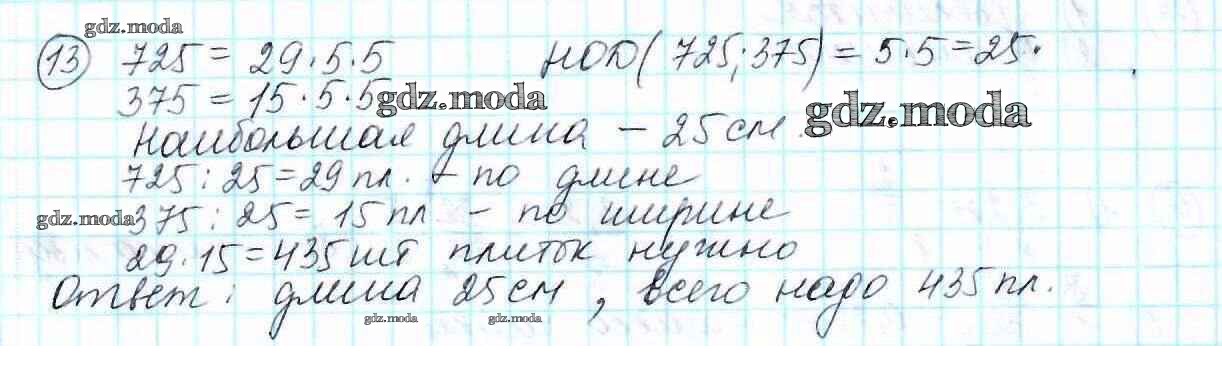 gdz.moda
13 725 = 29·5·5 НОД(725;375) = 5·5=25.
375 = 15·5·5 gdz.moda
наибольшая длина – 25см. gdz.moda
725:25=29 пл. – по длине
gdz.moda 375:25= 15 пл – по ширине
29·15=435шт плиток нужно
Ответ: длина 25см, всего надо 435 пл.
gdz.moda gdz.moda